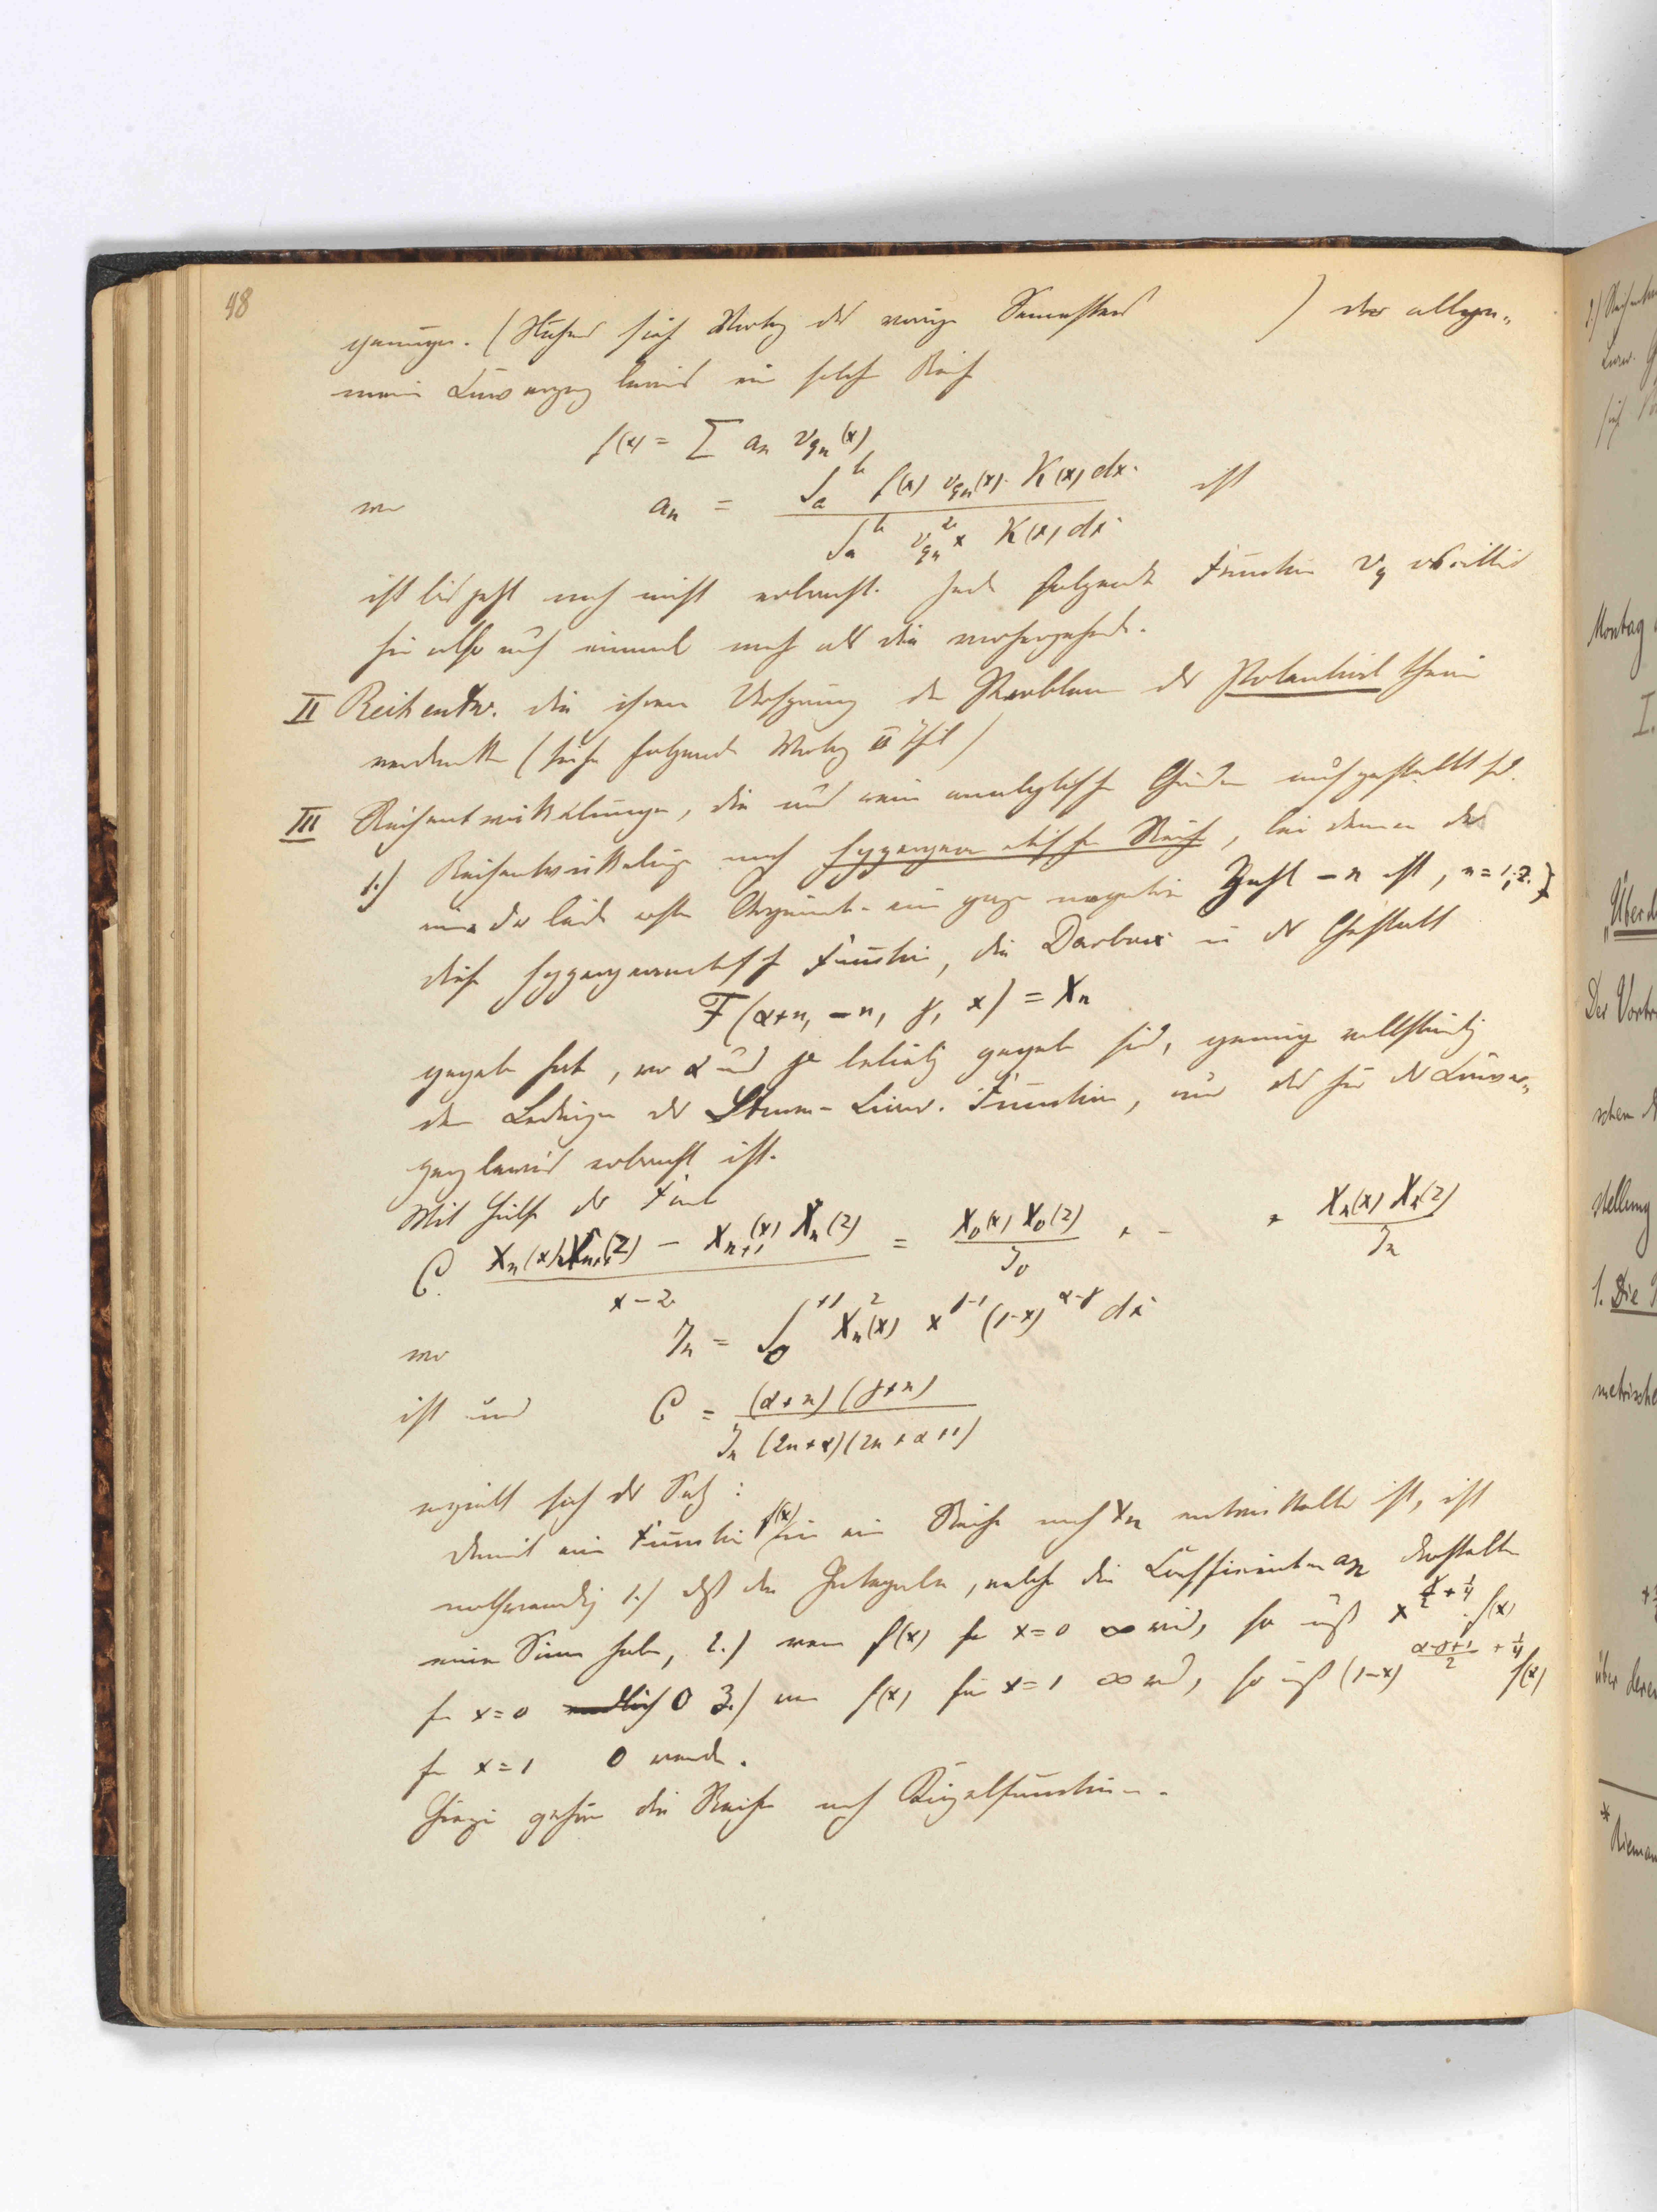 48
genügen. (Näheres siehe Vortrag des vorigen Semesters ) der allge-
meine Convergenzbeweis ein solche Reihe
f(x) = Σ a_n v_{q_n}(x)
wo a_n = ∫_a^b f(x) v_{q_n}(x) · K(x) dx / ∫_a^b v_{q_n}^2 x K(x) dx ist
ist bis jetzt noch nicht erbracht. Jede folgende Function v_q oscilliert
hier also auch einmal mehr als die vorhergehende.
II Reihentw. die ihren Ursprung den Problemen der Potentialtheorie
verdanken (siehe folgende Vortrag II Theil)
III Reihenentwickelungen, die aus rein analytischen Gründen aufgestellt sd.
1.) Reihenentwickelungen nach hypergeometrischen Reihe, bei denen das
eine der beiden ersten Argumente eine ganze negative Zahl −n ist, n = 1, 2.
diese hypergeometrische Function, die Darboux in der Gestalt
F(α+n, −n, γ, x) = X_n
gegeben hat, wo α und γ beliebig gegeben sind, genügen vollständig
den Bedingungen der Sturm-Liouv. Functionen, nur das hier der Conver-
genzbeweis erbracht ist.
Mit Hülfe der Formel
C. (X_n(x) X_{n+1}(z) − X_{n+1}(x) X_n(z)) / (x − z) = X_0(x) X_0(z) / J_0 + - + X_n(x) X_n(z) / J_n
wo J_n = ∫_0^{+1} X_n^2(x) x^{γ−1} (1−x)^{α−γ} dx
ist und C = (α+n)(γ+n) / J_n (2n+α)(2n+α+1)
ergiebt sich der Satz:
damit eine Function f(x) in eine Reihe nach X_n entwickelbar ist, ist
nothwendig 1.) daß die Integrale, welche die Coefficienten a_n darstellen
einen Sinn haben, 2.) wenn f(x) für x=0 ∞ wird, so muß x^{γ/2 + 1/4} · f(x)
für x=0 endlich 0 3.) wenn f(x) für x=1 ∞ wird, so muß (1−x)^{(α−γ+1)/2 + 1/4} f(x)
für x=1 0 werden.
Hierzu gehören die Reihen nach Kugelfunctionen.